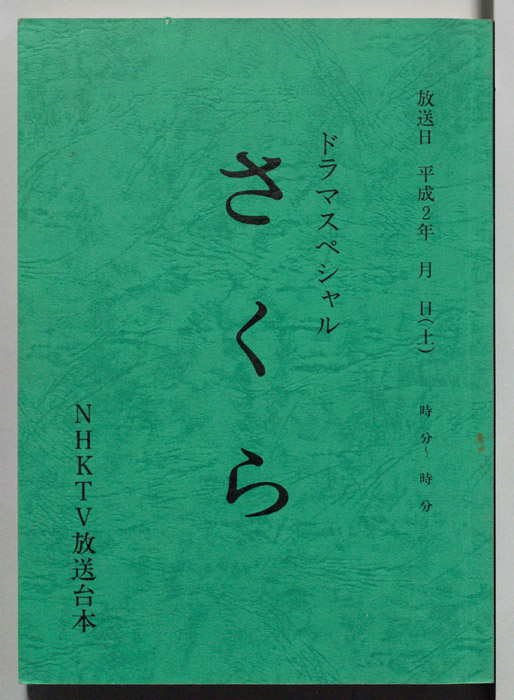 放送日 平成2年 月 日(土) 時 分~ 時 分
ドラマスペシャル
さくら
NHKTV放送台本